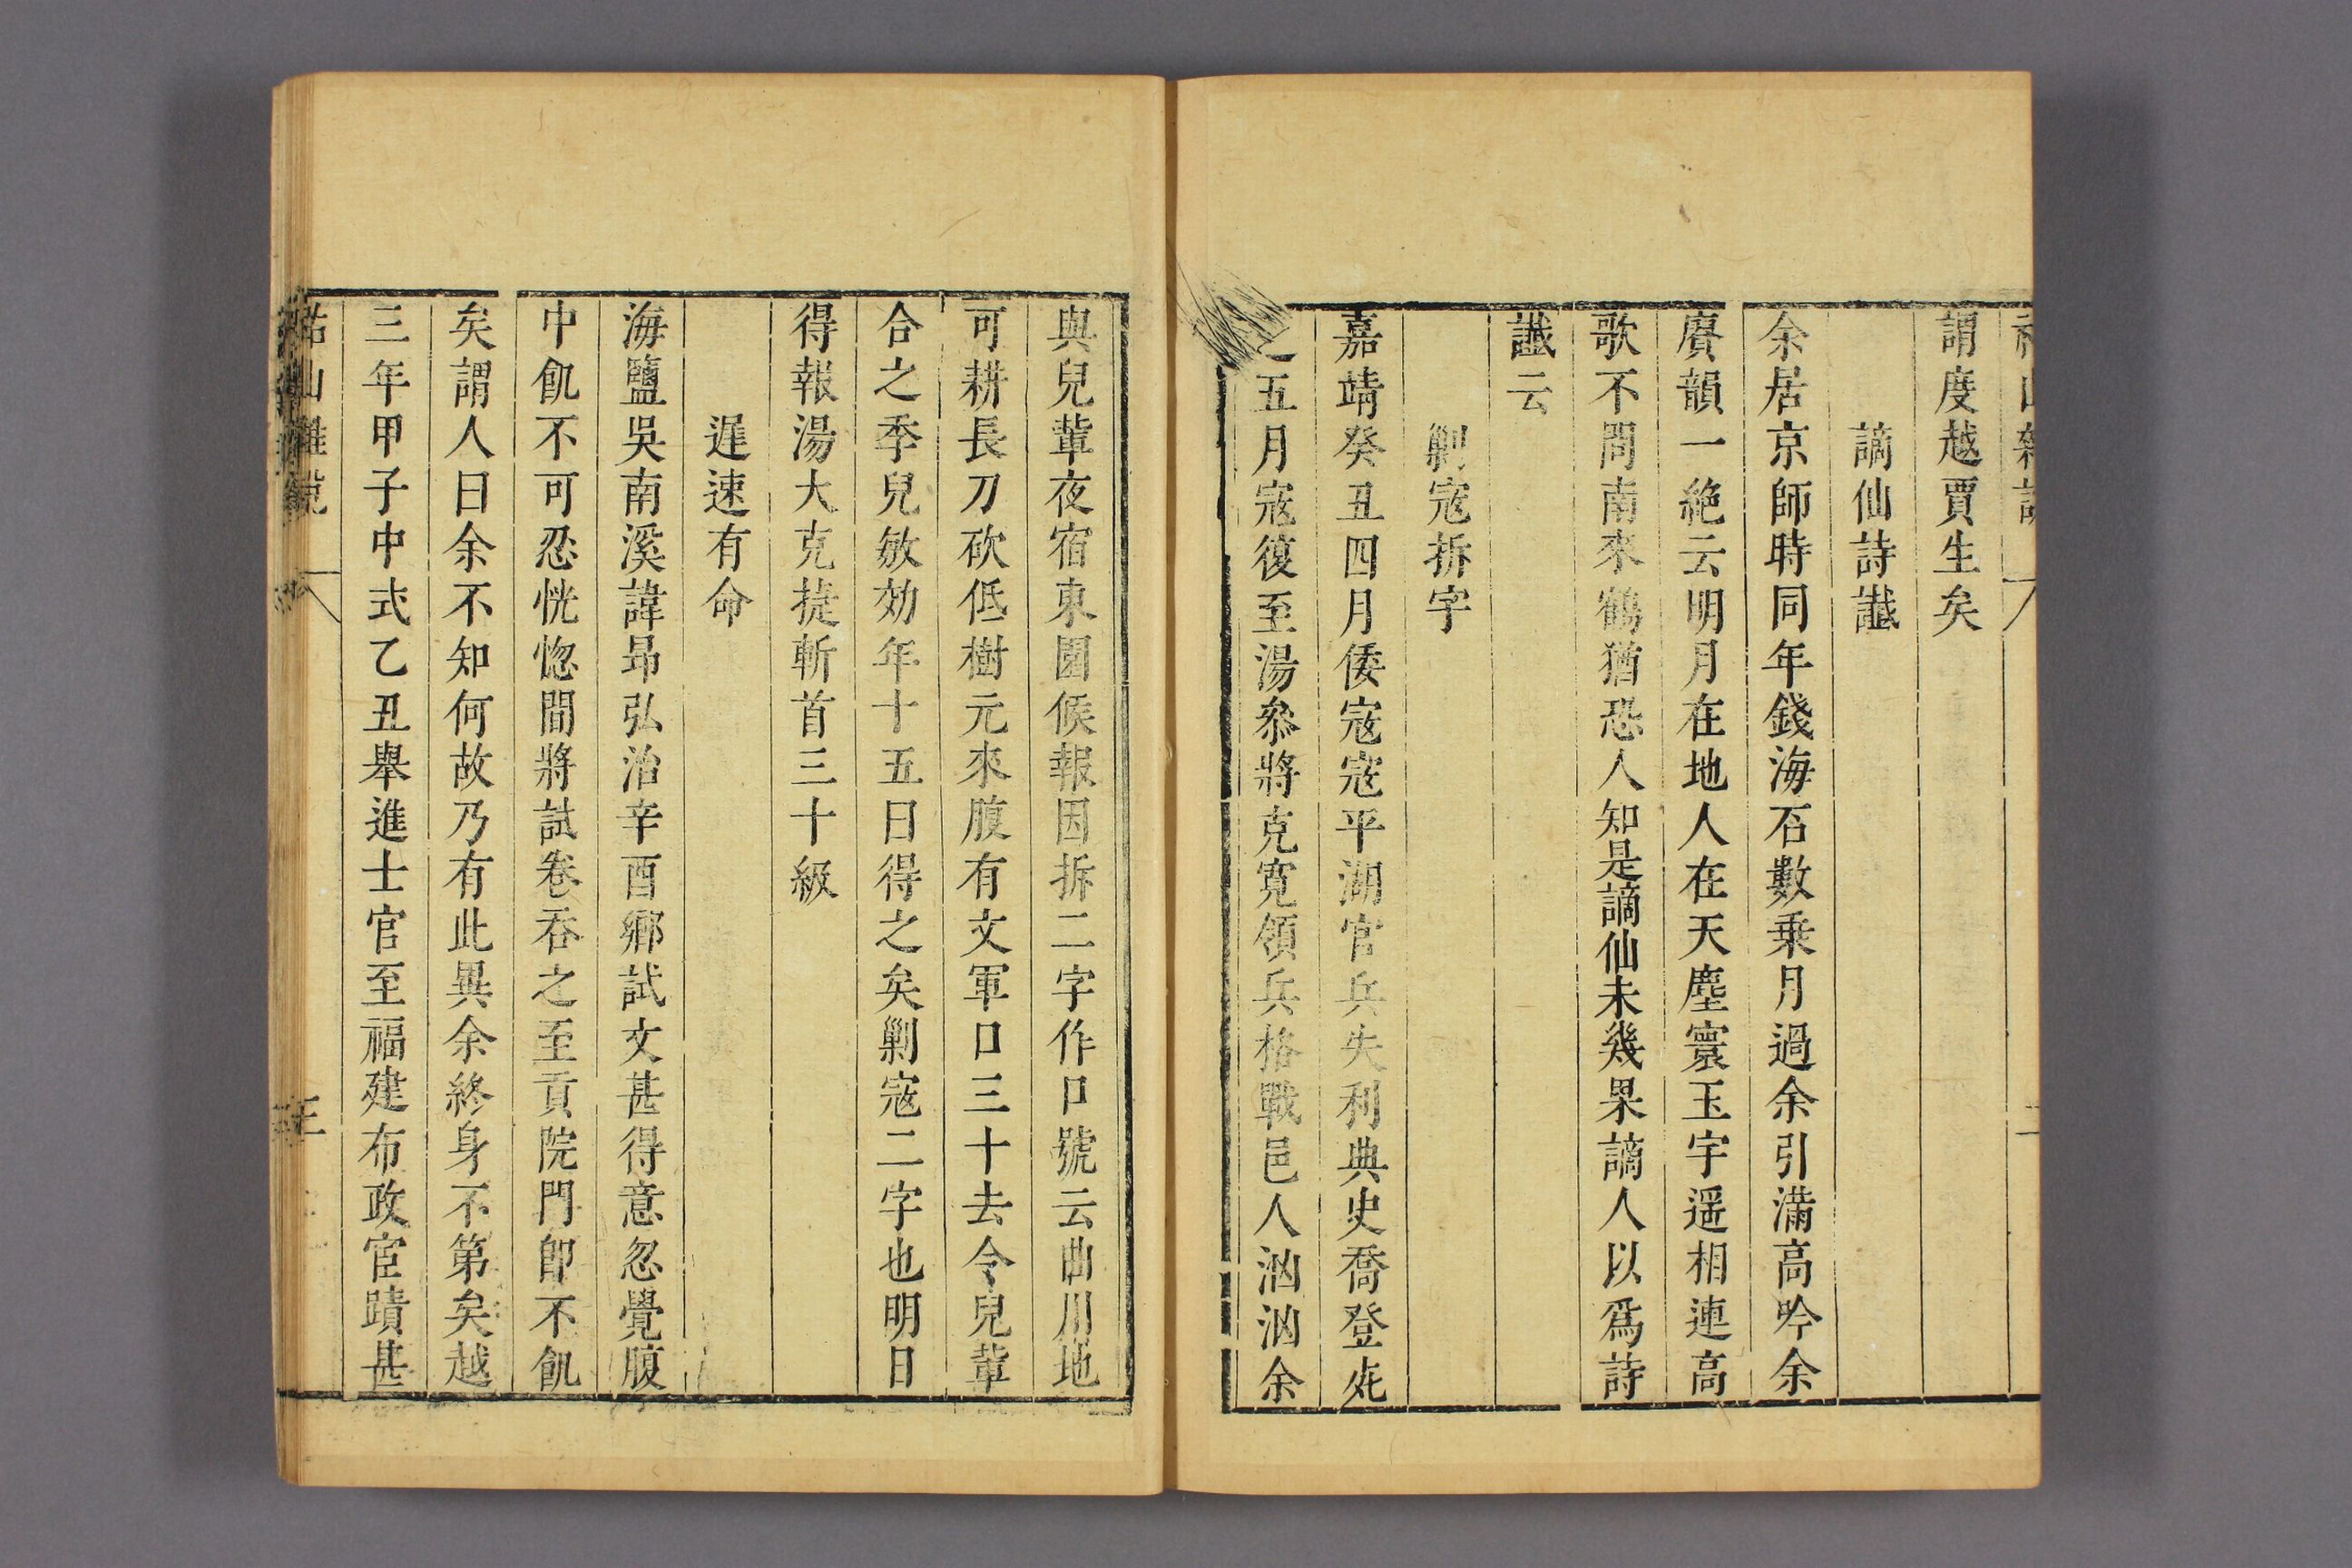 謂度越賈生矣
謫仙詩讖
余居京師時同年錢海石數乘月過余引滿高吟余
賡韻一絶云明月在地人在天塵寰玉宇遥相連高
歌不問南來鶴猶恐人知是謫仙未幾果謫人以爲詩
讖云
剿寇拆字
嘉靖癸丑四月倭寇寇平湖官兵失利典史喬登死
之五月寇復至湯叅將克寛領兵格戰邑人汹汹余
與兒輩夜宿東園候報因拆二字作口號云曲川地
可耕長刀砍低樹元來腹有文軍口三十去令兒輩
合之季兒敏効年十五曰得之矣剿寇二字也明日
得報湯大克捷斬首三十級
遲速有命
海鹽吳南溪諱昂弘治辛酉鄉試文甚得意忽覺腹
中飢不可忍恍惚間將試卷吞之至貢院門卽不飢
矣謂人曰余不知何故乃有此異余終身不第矣越
三年甲子中式乙丑舉進士官至福建布政宦蹟甚
祐山雜說 三